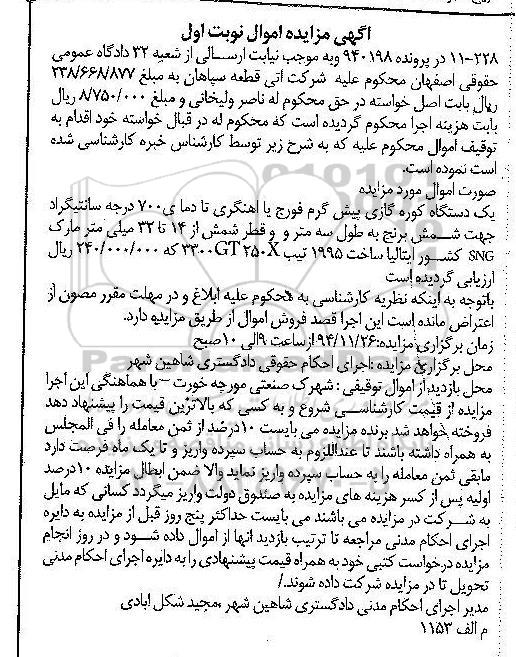 آگهی مزایده اموال نوبت اول
۱۱-۲۲۸ در پرونده ۹۴۰۱۹۸ وبه موجب نیابت ارسالی از شعبه ۳۲ دادگاه عمومی
حقوقی اصفهان محکوم علیه شرکت اتی قطعه سپاهان به مبلغ ۲۳۸/۶۶۸/۸۷۷
ریال بابت اصل خواسته در حق محکوم له ناصر ولیخانی و مبلغ ۸/۷۵۰/۰۰۰ ریال
بابت هزینه اجرا محکوم گردیده است که محکوم له در قبال خواسته خود اقدام به
توقیف اموال محکوم علیه که به شرح زیر توسط کارشناس خبره کارشناسی شده
است نموده است.
صورت اموال مورد مزایده
یک دستگاه کوره گازی پیش گرم فورج یا اهنگری تا دما ی۷۰۰ درجه سانتیگراد
جهت شمش برنج به طول سه متر و و قطر شمش از ۱۴ تا ۳۲ میلی متر مارک
SNG کشور ایتالیا ساخت ۱۹۹۵ تیپ ۳۳۰۰GT ۲۵۰X که ۲۴۰/۰۰۰/۰۰۰ ریال
ارزیابی گردیده است
باتوجه به اینکه نظریه کارشناسی به محکوم علیه ابلاغ و در مهلت مقرر مصون از
اعتراض مانده است این اجرا قصد فروش اموال از طریق مزایده دارد.
زمان برگزاری مزایده:۹۴/۱۱/۲۶ ازساعت ۹الی ۱۰صبح
محل برگزاری مزایده :اجرای احکام حقوقی دادگستری شاهین شهر
محل بازدید از اموال توقیفی : شهرک صنعتی مورچه خورت – با هماهنگی این اجرا
مزایده از قیمت کارشناسی شروع و به کسی که بالاترین قیمت را پیشنهاد دهد
فروخته خواهد شد برنده مزایده می بایست ۱۰درصد از ثمن معامله را فی المجلس
به همراه داشته باشند تا عنداللزوم به حساب سپرده واریز و تا یک ماه فرصت دارد
مابقی ثمن معامله را به حساب سپرده واریز نماید والا ضمن ابطال مزایده ۱۰درصد
اولیه پس از کسر هزینه های مزایده به صندوق دولت واریز میگردد کسانی که مایل
به شرکت در مزایده می باشند می بایست حداکثر پنج روز قبل از مزایده به دایره
اجرای احکام مدنی مراجعه تا ترتیب بازدید انها از اموال داده شود و در روز انجام
مزایده درخواست کتبی خود به همراه قیمت پیشنهادی را به دایره اجرای احکام مدنی
تحویل تا در مزایده شرکت داده شوند./
مدیر اجرای احکام مدنی دادگستری شاهین شهر ،مجید شکل ابادی
م الف ۱۱۵۳